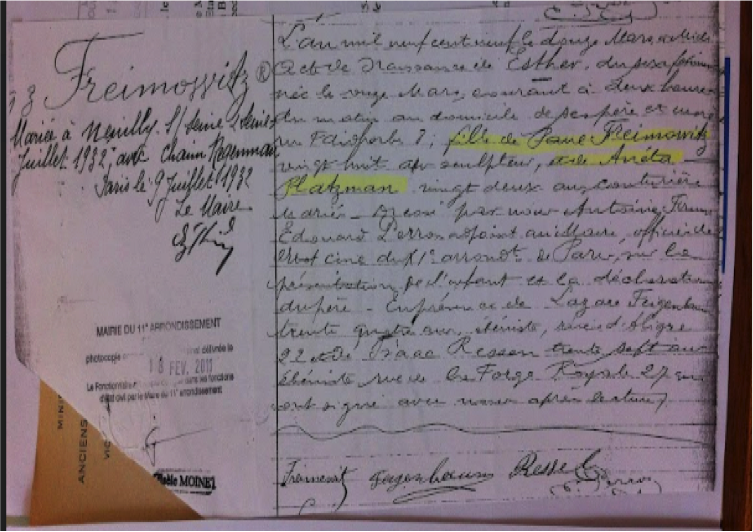 Freimowitz
Mariée à Neuilly S/ Seine (Seine)
juillet 1932, avec Chaim
Paris le 9 juillet 1932
Le Maire
MAIRIE DU 11e ARRONDISSEMENT
photocopie délivrée le
18 FEV. 2011
Le Fonctionnaire dans les fonctions
d'état civil par le Maire du 11e arrondissement
MOINET
ANCIENS
L'an mil neuf cent neuf le douze Mars, à Midi
Acte de Naissance de Esther, du sexe féminin
née le Mars, courant à deux heures
du matin au domicile de ses père et mère
rue Faidherbe 7, fille de Freimowitz
vingt huit ans sculpteur, et de Anéta
Platzman vingt deux ans couturière
Mariés - Dressé par nous Antoine
Edouard adjoint au Maire, officier de
l'état civil du XIe arrondt. de Paris, sur la
présentation de l'enfant et la déclaration
du père - En présence de Lazare
trente quatre ans, ébéniste, rue d'Aligre
22 et de Isaac trente sept ans
ébéniste rue de la Forge Royale 27 qui
ont signé avec nous après lecture